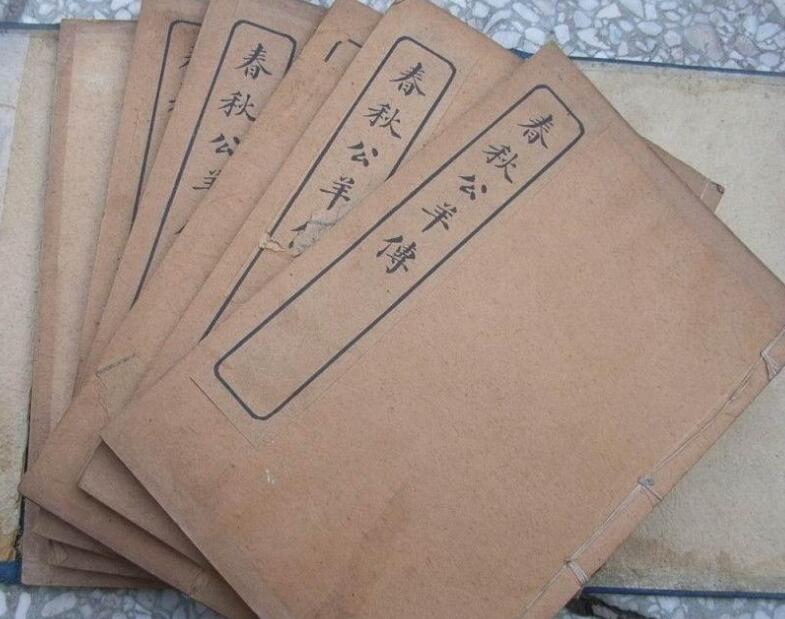 春秋公羊傳
春秋公羊
春秋公